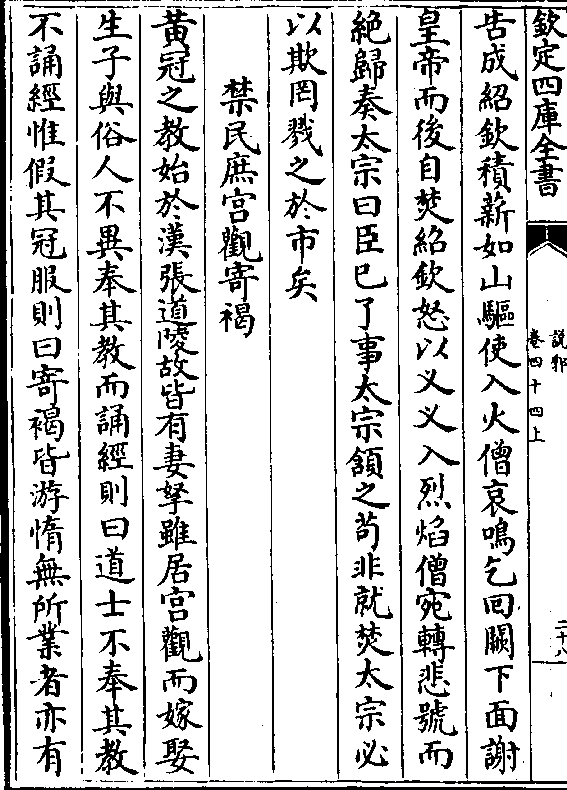 欽定四庫全書
說郛
卷四十四上
二十八
告成紹欽積薪如山驅使入火僧哀鳴乞回闕下面謝
皇帝而後自焚紹欽怒以义义入烈焰僧宛轉悲號而
絶歸奏太宗曰臣已了事太宗頷之茍非就焚太宗必
以欺罔戮之於市矣
禁民庶宫觀寄褐
黄冠之教始於漢張道陵故皆有妻孥雖居宫觀而嫁娶
生子與俗人不異奉其教而誦經則曰道士不奉其教
不誦經惟假其冠服則曰寄褐皆游惰無所業者亦有